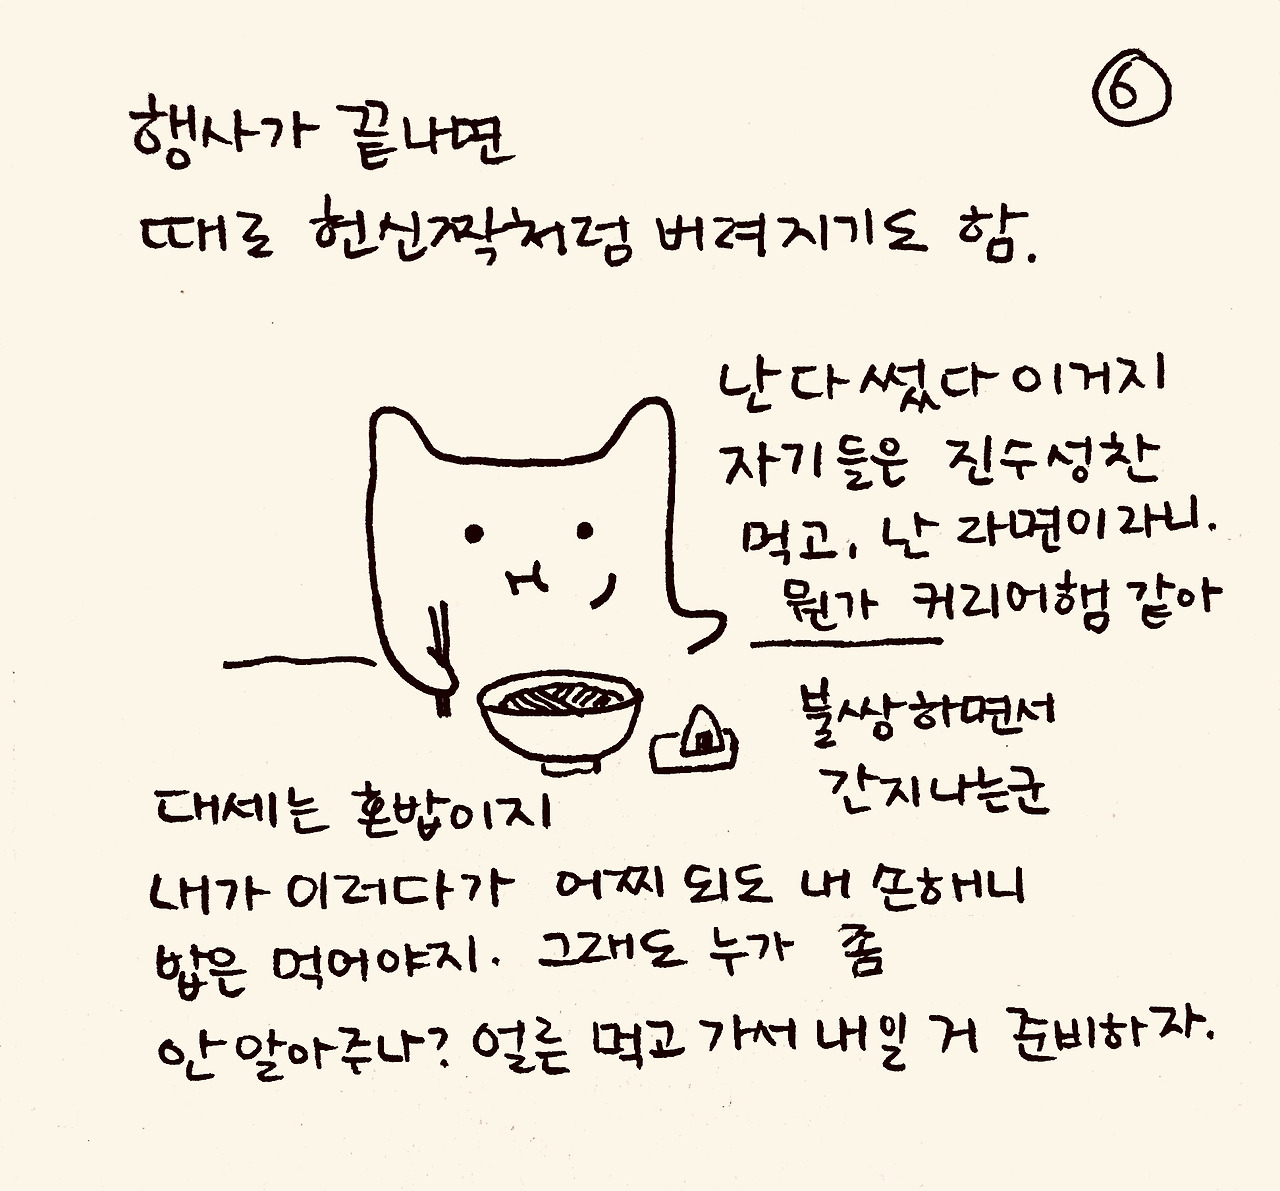 ⑥
행사가 끝나면
때로 헌신짝처럼 버려지기도 함.
난 다 썼다 이거지
자기들은 진수성찬
먹고, 난 라면이라니.
뭔가 커리어햄 같아
불쌍하면서
간지나는군
대세는 혼밥이지
내가 이러다가 어찌 되도 내 손해니
밥은 먹어야지. 그래도 누가 좀
안 알아주나? 얼른 먹고 가서 내일 거 준비하자.